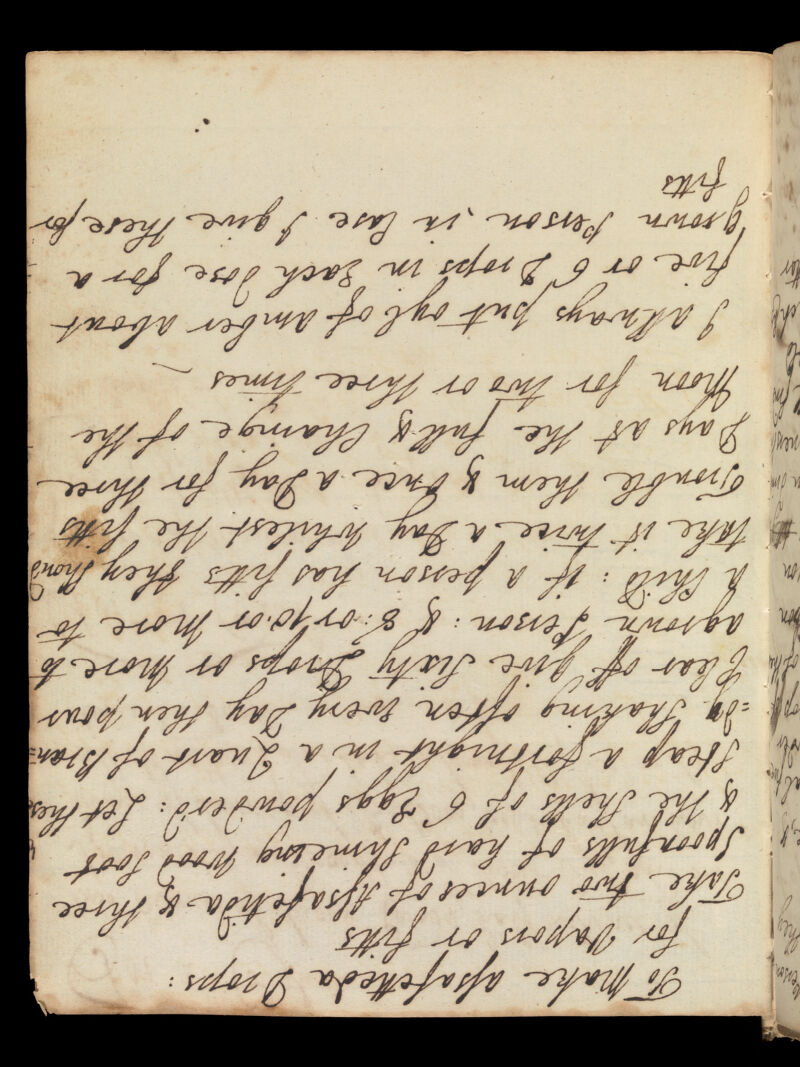 To Make assafetteda Drops:
for Vapors or fitts
Take two ounces of Assafetida & three
Spoonfulls of hard Shineing wood Soot
& the Shells of 6 Eggs powder'd: Let these
Steap a fortnight in a Quart of Bran=
=dy Shaking often every Day then pour
Clear off give Sixty Drops or more to
a grown Person: & 8: or 10: or more to
a Child: if a person has fitts they Shou'd
take it twice a Day whilest the fitts
Trouble them & once a Day for three
Days at the full & Change of the
Moon for two or three times
I allways put oyl of amber about
five or 6 Drops in Each Dose for a
grown Person in Case I give these for
fitts